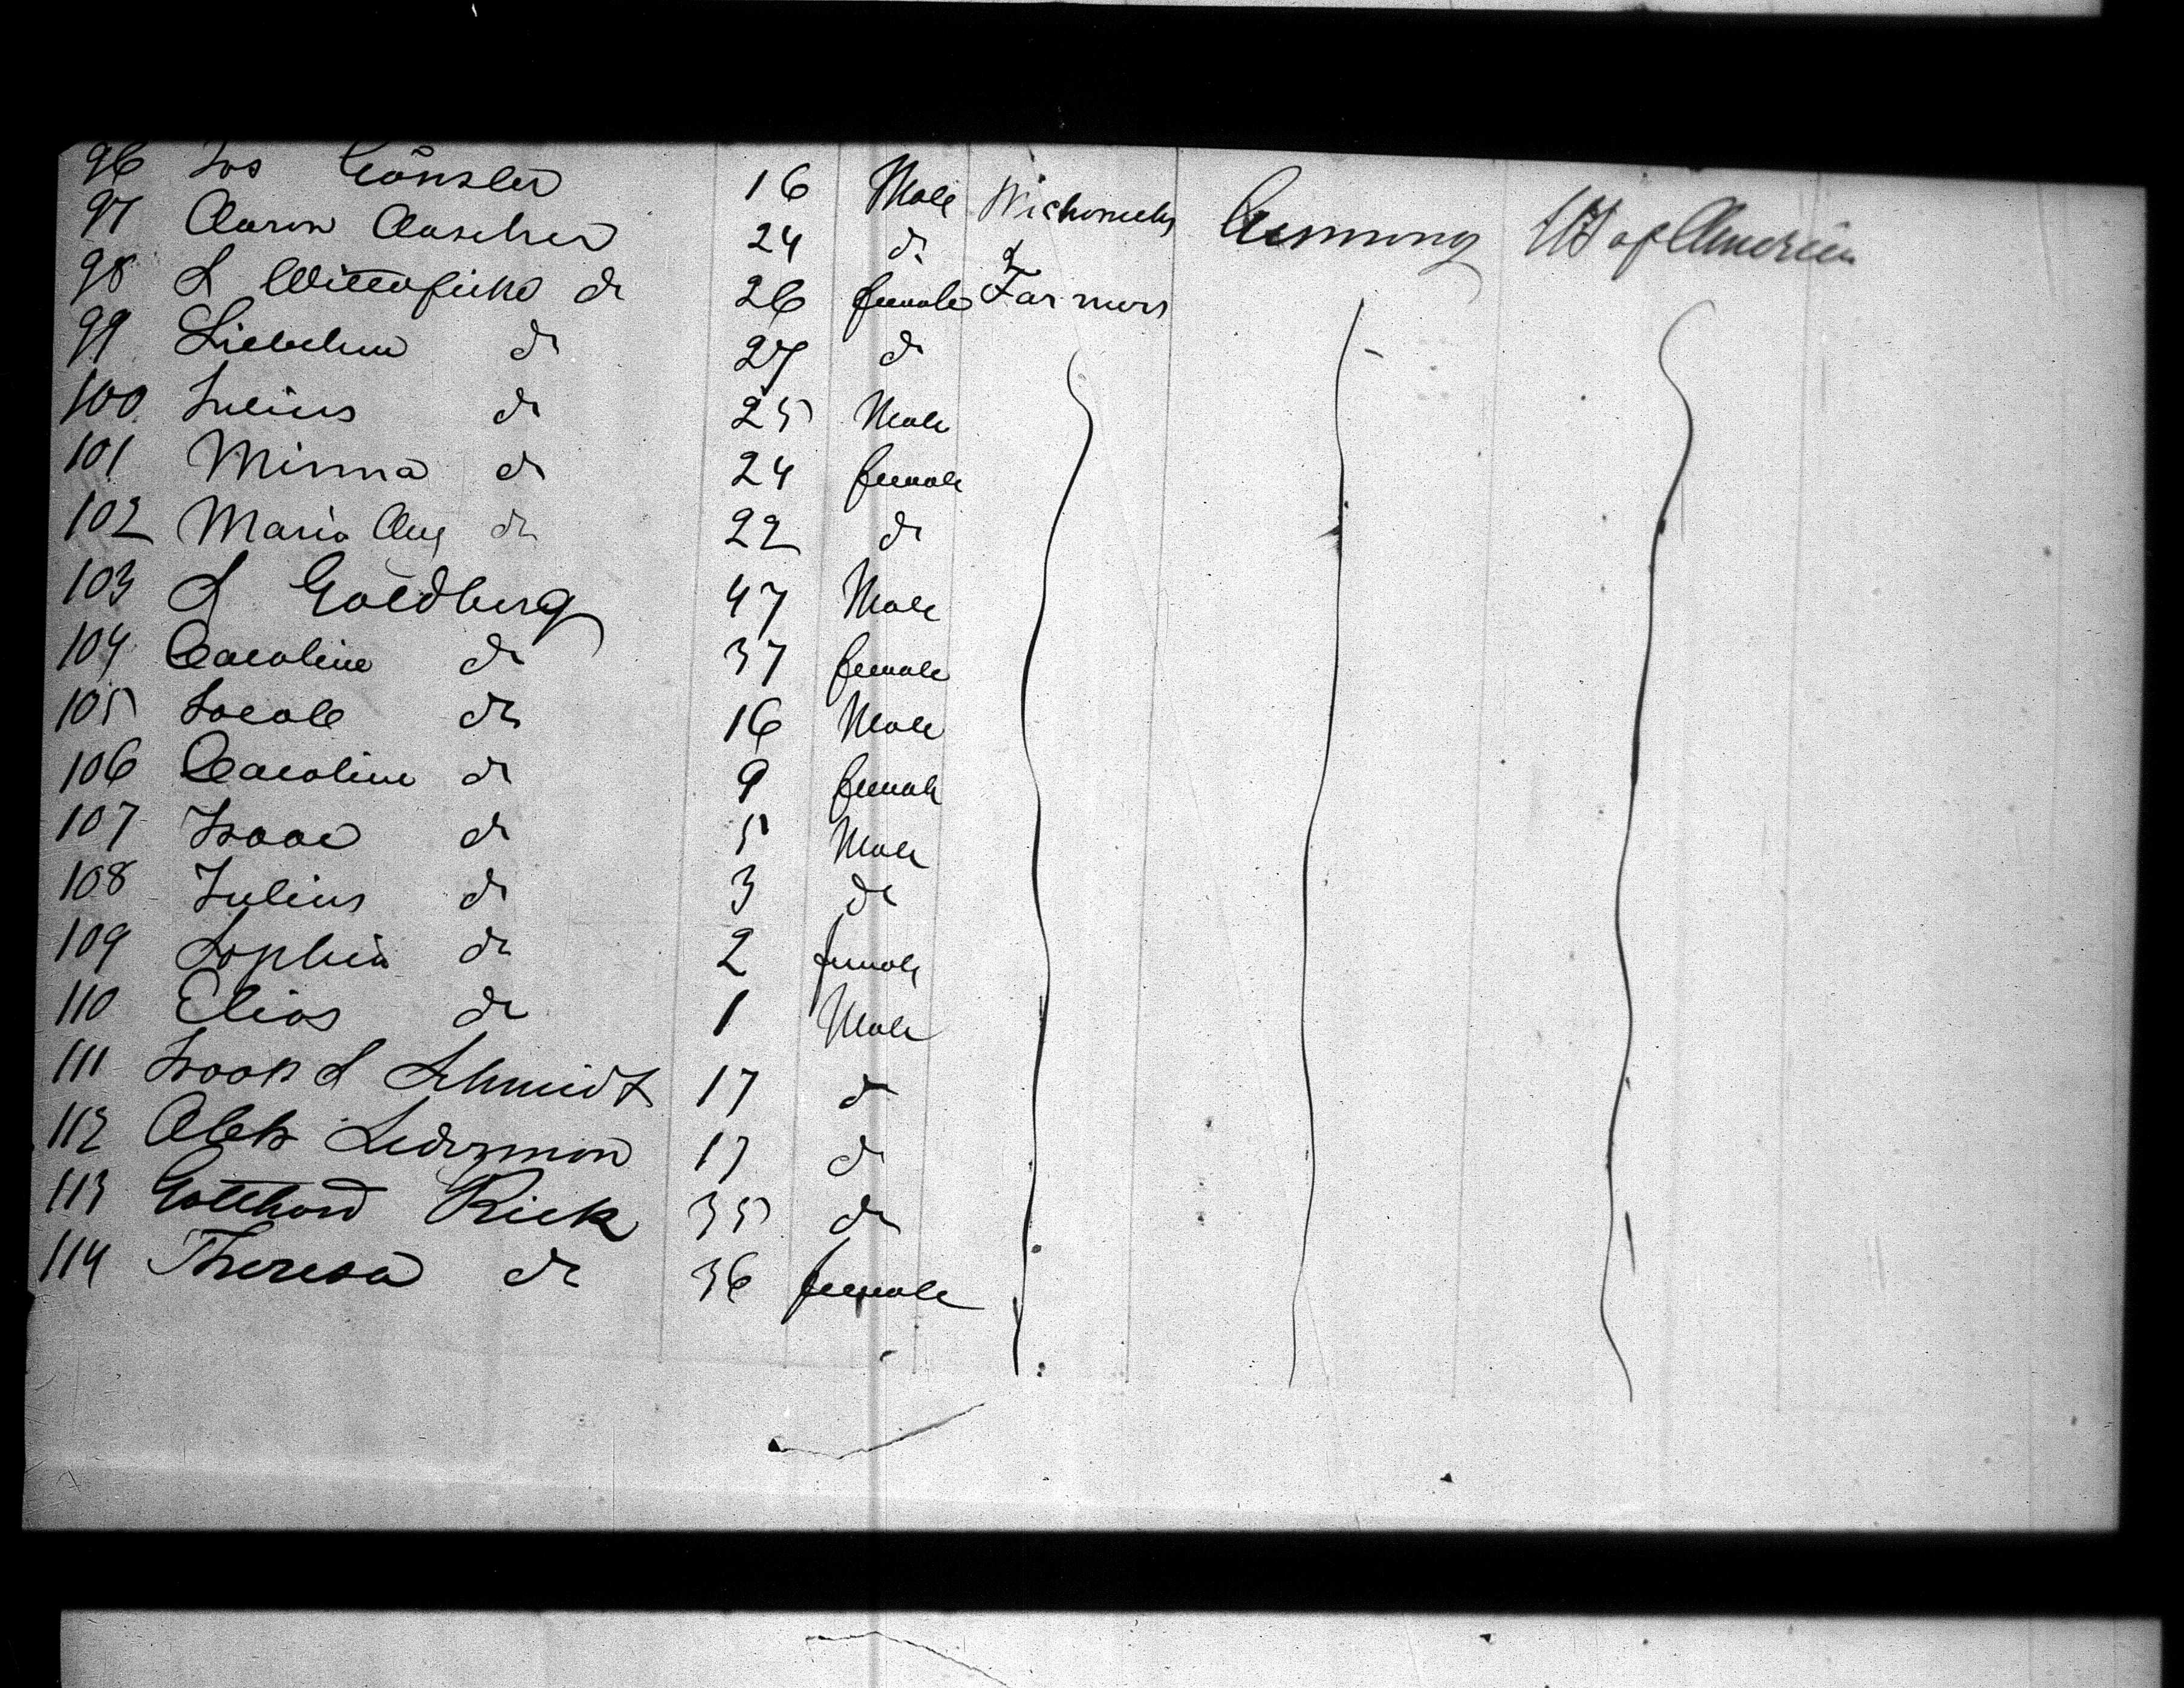 96 Jos Gänsler 16 Male Mechanics Germany US of America
97 Aaron Ascher 24 do &
98 L do 26 female Farmers
99 Liebchen do 27 do
100 Julius do 25 Male
101 Minna do 24 female
102 Maria Aug do 22 do
103 L Goldberg 47 Male
104 Caroline do 37 female
105 Jacob do 16 Male
106 Caroline do 9 female
107 Isaac do 5 Male
108 Julius do 3 do
109 Sophia do 2 female
110 Elias do 1 Male
111 Isaak L Schmidt 17 do
112 Alex Lederman 17 do
113 Gotthard Rick 35 do
114 Theresa do 36 female